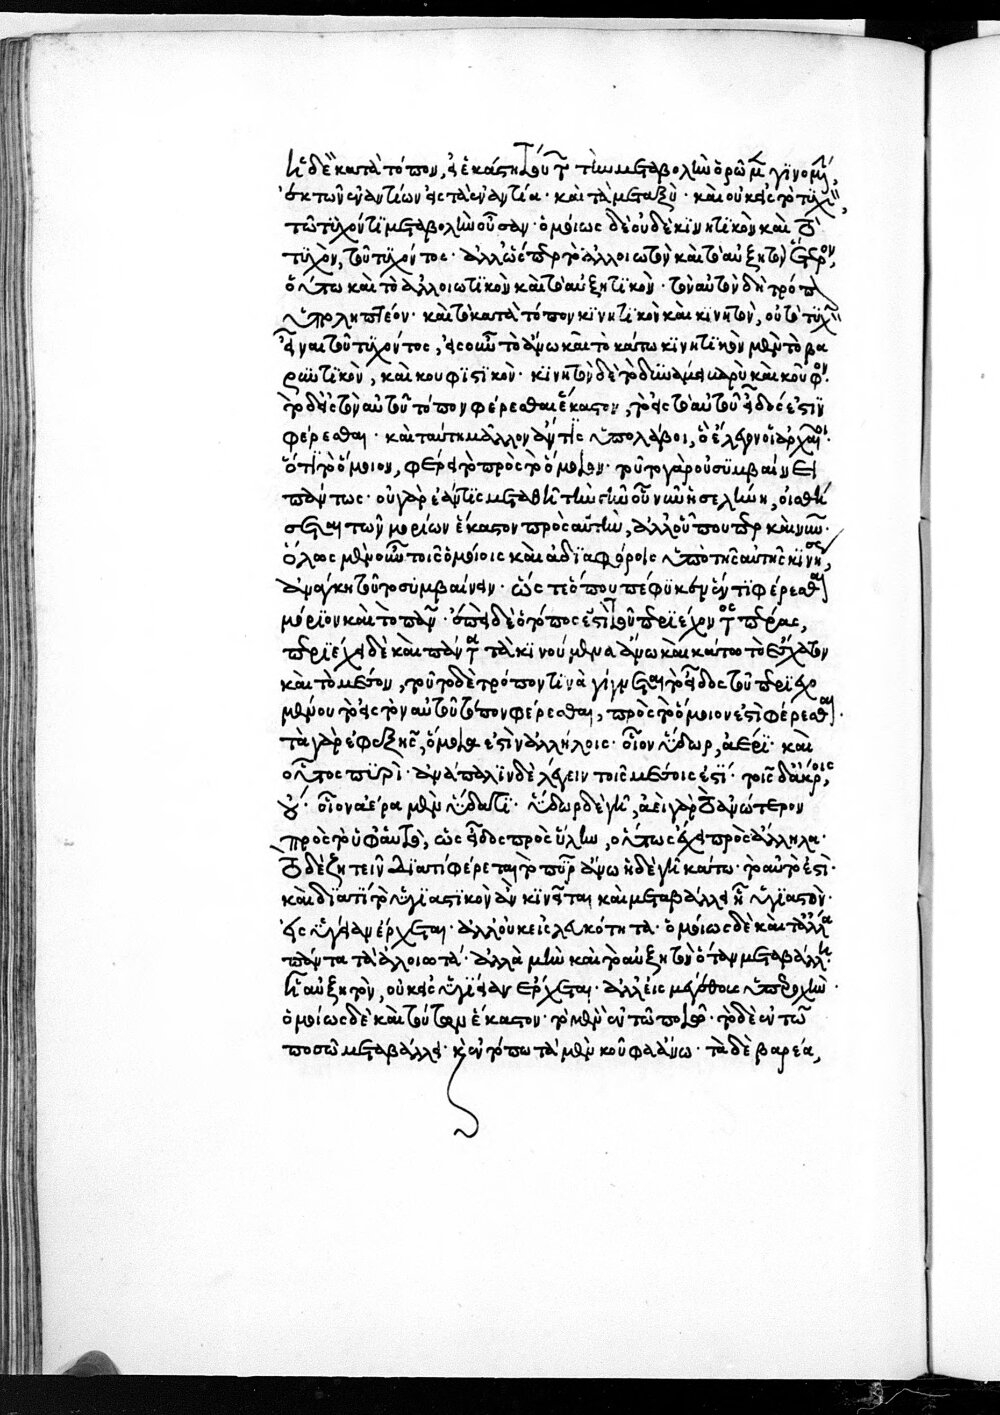 ἡ δὲ κατὰ τόπον, ἐν ἑκάστη τούτων τὴν μεταβολὴν ὁρῶμεν γινομένην,
ἐκ τῶν ἐναντίων εἰς τὰ ἐναντία· καὶ τὰ μεταξὺ· καὶ οὐκ εἰς τὸ τυχὸν,
τῶ τυχόντι μεταβολὴν οὖσαν· ὁμοίως δὲ οὐδὲ κινητικὸν καὶ τὸ
τυχὸν, τοῦ τυχόντος· ἀλλ' ὥσπερ τὸ ἀλλοιωτὸν καὶ τὸ αὐξητὸν ἕτερον,
οὕτω καὶ τὸ ἀλλοιωτικὸν καὶ τὸ αὐξητικὸν· τὸν αὐτὸν δὴ τρόπον
ὑποληπτέον· καὶ τὸ κατὰ τόπον κινητικὸν καὶ κινητὸν, οὐ τὸ τυχὸν
εἶναι τοῦ τυχόντος, εἰς οὖν τὸ ἄνω καὶ τὸ κάτω κινητικὸν μὲν τὸ βα
ρυντικὸν, καὶ κουφιστικὸν· κινητὸν δὲ τὸ δυνάμει βαρὺ καὶ κοῦφον·
τὸ δ' εἰς τὸν αὐτοῦ τόπον φέρεσθαι ἕκαστον, τὸ εἰς τὸ αὐτοῦ εἶδός ἐστιν
φέρεσθαι· καὶ ταύτη μᾶλλον ἄν τις ὑπολάβοι, ὃ ἔλεγον οἱ ἀρχαῖοι·
ὅτι τὸ ὅμοιον, φέρει τὸ πρὸς τὸ ὅμοιον· τοῦτο γὰρ οὐ συμβαίνει
πάντως· οὐ γὰρ ἐάν τις μεταθῆ τὴν γῆν οὗ νῦν ἡ σελήνη, οἰσθή
σεται τῶν μορίων ἕκαστον πρὸς αὐτὴν, ἀλλ' ὅπου περ καὶ νῦν·
ὅλως μὲν οὖν τοῖς ὁμοίοις καὶ ἀδιαφόροις ὑπὸ τῆς αὐτῆς κινήσεως,
ἀνάγκη τοῦτο συμβαίνειν· ὥστε ὅπου πέφυκεν ἕν τι φέρεσθαι
μόριον καὶ τὸ πᾶν· ἐπεὶ δὲ ὁ τόπος ἐστὶ τὸ τοῦ περιέχοντος πέρας,
περιέχει δὲ καὶ πάντα τὰ κινούμενα ἄνω καὶ κάτω τὸ ἔσχατον
καὶ τὸ μέσον, τοῦτο δὲ τρόπον τινὰ γίγνεται τὸ εἶδος τοῦ περιεχο
μένου τὸ εἰς τὸν αὐτοῦ τόπον φέρεσθαι, πρὸς τὸ ὅμοιον ἐστὶ φέρεσθαι·
τὰ γὰρ ἐφεξῆς, ὅμοιά ἐστιν ἀλλήλοις· οἷον ὕδωρ, ἀέρι· καὶ
οὗτος πυρὶ· ἀνάπαλιν δὲ λέγειν τοῖς μέσοις ἐστί· τοῖς δ' ἄκροις,
οὔ· οἷον ἀέρα μὲν ὕδατι· ὕδωρ δὲ γῆ, ἀεὶ γὰρ τὸ ἀνώτερον
πρὸς τὸ ὑφ' αὑτὸ, ὡς εἶδος πρὸς ὕλην, οὕτως ἔχει πρὸς ἄλληλα·
τὸ δὲ ζητεῖν διατί φέρεται τὸ πῦρ ἄνω ἡ δὲ γῆ κάτω· τὸ αὐτό ἐστι·
καὶ διατί τὸ ὑγιαστικὸν ἂν κινῆται καὶ μεταβάλλη ἧ ὑγιαστὸν·
εἰς ὑγείαν ἔρχεται· ἀλλ' οὐκ εἰς λευκότητα· ὁμοίως δὲ καὶ τἄλλα
πάντα τὰ ἀλοιωτά· ἀλλὰ μὴν καὶ τὸ αὐξητὸν ὅταν μεταβάλλη
ἧ αὐξητὸν, οὐκ εἰς ὑγίειαν ἔρχεται· ἀλλ' εἰς μεγέθους ὑπεροχὴν·
ὁμοίως δὲ καὶ τούτων ἕκαστον· τὸ μὲν ἐν τῶ ποιῶ· τὸ δὲ ἐν τῶ
ποσῶ μεταβάλλει· καὶ ἐν τόπω τὰ μὲν κοῦφα ἄνω· τὰ δὲ βαρέα,